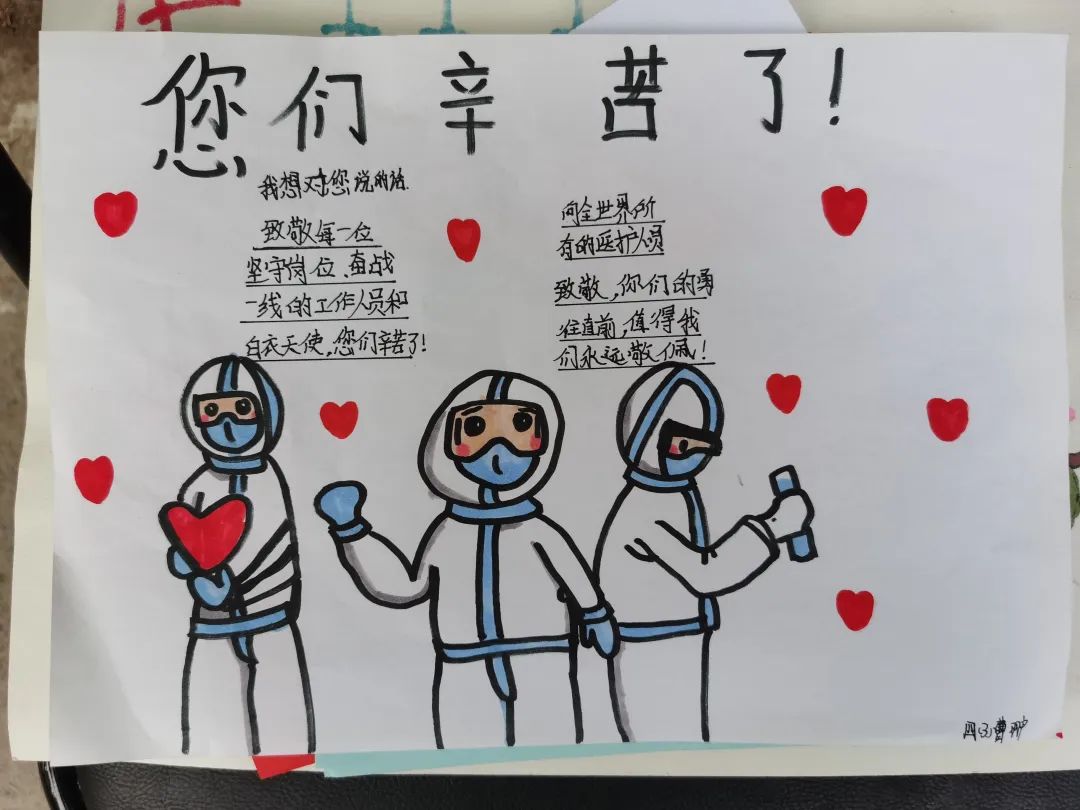 您们辛苦了！
我想对您说的话.
致敬每一位
坚守岗位、奋战
一线的工作人员和
白衣天使,您们辛苦了!
向全世界所
有的医护人员
致敬,你们的勇
往直前,值得我
们永远敬佩!
四
曹